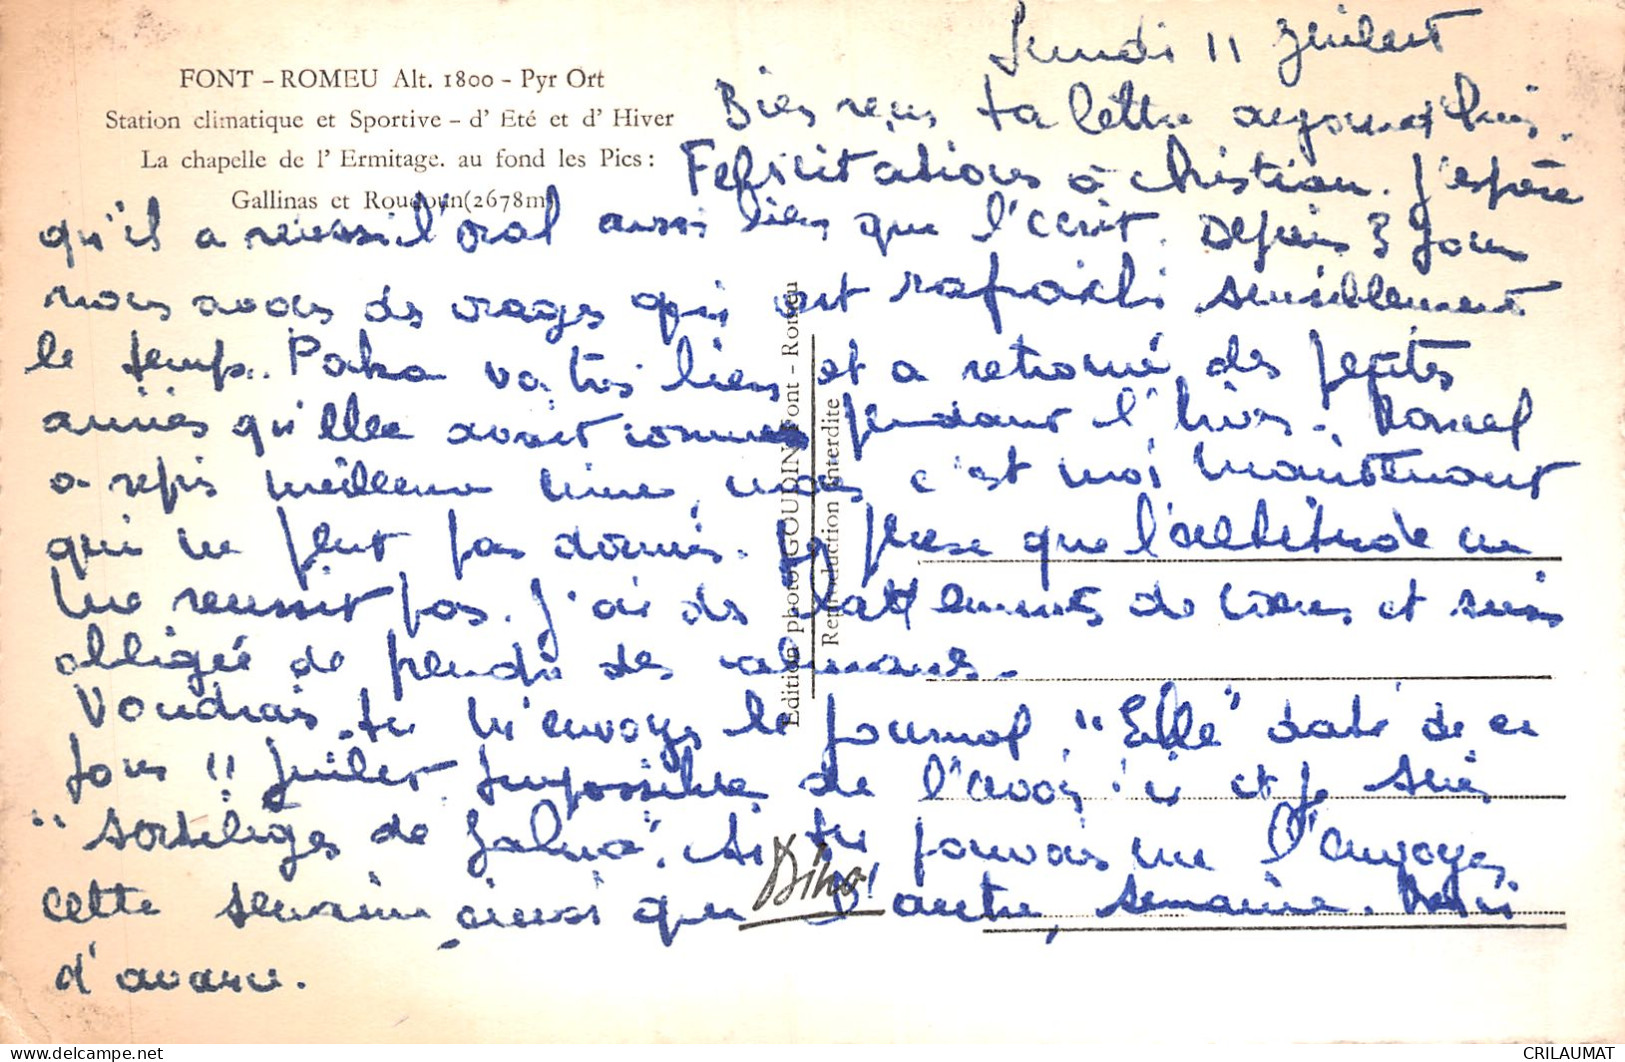 FONT - ROMEU Alt. 1800 - Pyr Ort
Station climatique et Sportive - d' Eté et d' Hiver
La chapelle de l' Ermitage. au fond les Pics :
Gallinas et Roudoun(2678m)
Lundi 11 Juillet
Bien reçu ta lettre aujourd'hui.
Felicitations à Christian. J'espère
qu'il a reussi l'oral aussi bien que l'ecrit. Depuis 3 jours
nous avons des orages qui ont rafraichi sensiblement
le temps. va très bien et a retrouvé des petites
amies qu'elle avait connues pendant l'hiver. Marcel
a repris meilleure mine, mais c'est moi maintenant
qui ne peut pas dormir. Je pense que l'altitude ne
me reussit pas. J'ai des battements de cœur et suis
obligée de prendre des calmants.
Voudrais-tu m'envoyer le journal "Elle" daté de ce
jour 11 Juillet. Impossible de l'avoir ici et je suis
"Sortilèges de . Si tu pouvais me l'envoyer
cette semaine ainsi que l'autre semaine. Merci
d'avance.
Edition photo GOUDIN Font - Romeu
Reproduction Interdite
CRILAUMAT